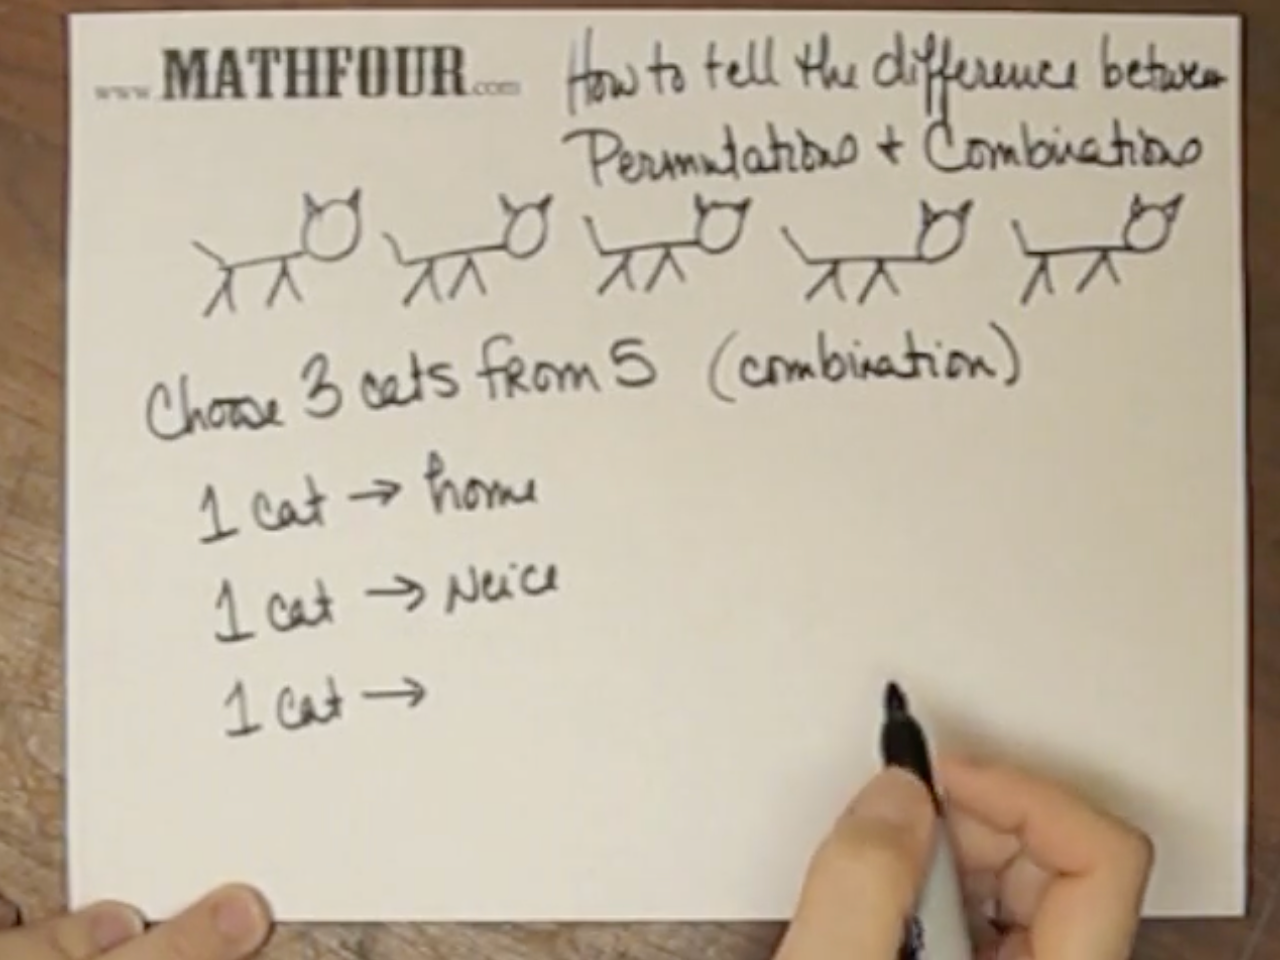 www.MATHFOUR.com
How to tell the difference between
Permutations + Combinations
Choose 3 cats from 5 (combination)
1 cat → home
1 cat → Neice
1 cat →